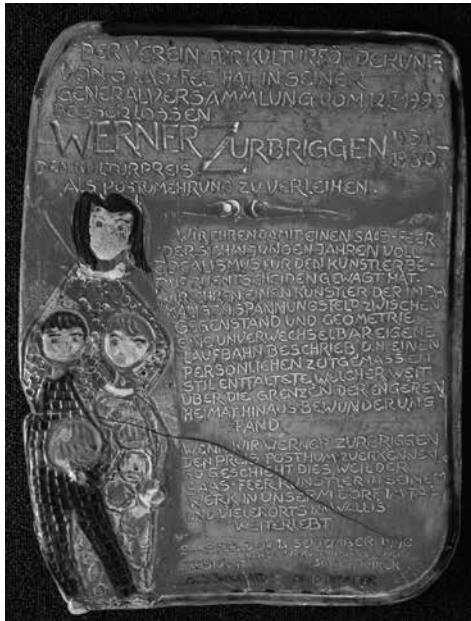 DER VEREIN FÜR KULTURFÖRDERUNG
VON SAAS-FEE HAT IN SEINER
GENERALVERSAMMLUNG VOM 12.7.1990
BESCHLOSSEN
WERNER ZURBRIGGEN 1931
1980
DEN KULTURPREIS
ALS POSTUMEHRUNG ZU VERLEIHEN.
WIR EHREN DAMIT EINEN SAAS-FEER
DER SICH IN JUNGEN JAHREN VOLL
IDEALISMUS FÜR DEN KÜNSTLERBE-
RUF ENTSCHEIDEN GEWAGT HAT.
WIR EHREN EINEN KÜNSTLER DER IM DA-
MALIGEN SPANNUNGSFELD ZWISCHEN
GEGENSTAND UND GEOMETRIE
EINE UNVERWECHSELBAR EIGENE
LAUFBAHN BESCHRIEB, D.H. EINEN
PERSÖNLICHEN ZEITGEMÄSSEN
STIL ENTFALTETE, WELCHER WEIT
ÜBER DIE GRENZEN DER ENGEREN
HEIMAT HINAUS BEWUNDERUNG
FAND.
WENN WIR WERNER ZURBRIGGEN
DEN PREIS POSTHUM ZUERKENNEN,
SO GESCHIEHT DIES WEIL DER
SAAS-FEER KÜNSTLER IN SEINEM
WERK IN UNSERM DORF, IM TAL
UND VIELERORTS IM WALLIS
WEITERLEBT.
SEPTEMBER 1990